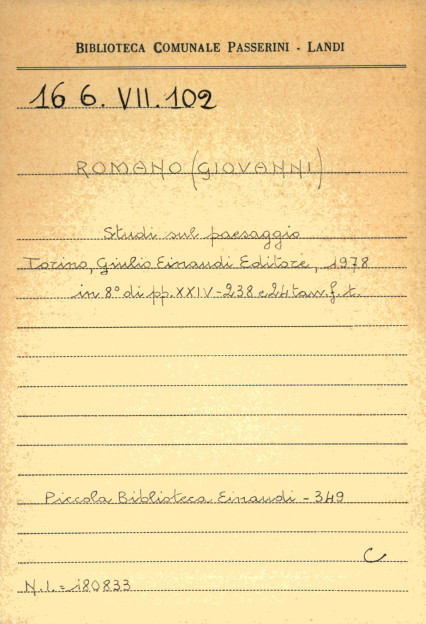 BIBLIOTECA COMUNALE PASSERINI - LANDI
16 6. VII. 102
ROMANO (GIOVANNI)
Studi sul paesaggio
Torino, Giulio Einaudi Editore, 1978
in 8° di pp. XXIV-238 e 24 tav. f. t.
Piccola Biblioteca Einaudi - 349
C
N.I. = 180833